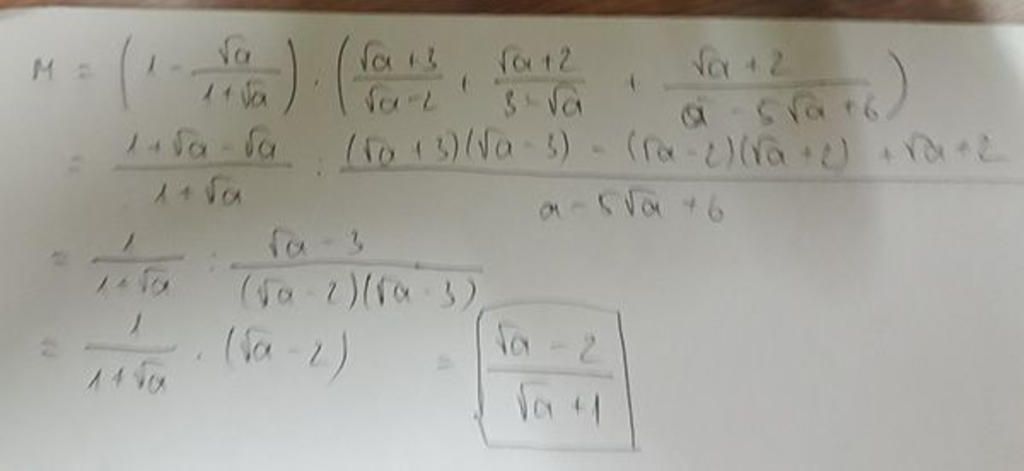 M = (1 - √a/(1+√a)) : ((√a+3)/(√a-2) + (√a+2)/(3-√a) + (√a+2)/(a-5√a+6))
= (1+√a-√a)/(1+√a) : ((√a+3)(√a-3) - (√a-2)(√a+2) + √a+2)/(a-5√a+6)
= 1/(1+√a) : (√a-3)/((√a-2)(√a-3))
= 1/(1+√a) . (√a-2) = (√a-2)/(√a+1)